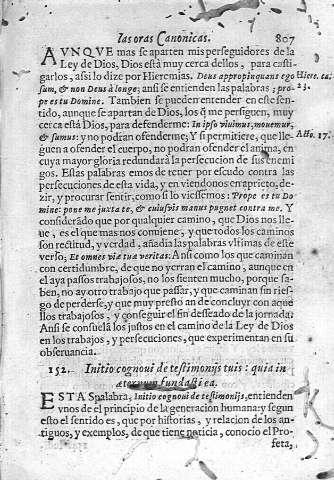 las oras Canonicas. 807
AVNQVE mas se aparten mis perseguidores de la
Ley de Dios, Dios està muy cerca dellos, para casti-
garlos, assi lo dize por Hieremias. Deus appropinquans ego Hiere. ca.
sum, & non Deus à longe; ansi se entienden las palabras; pro- 23.
pe es tu Domine. Tambien se pueden entender en este sen-
tido, aunque se apartan de Dios, los q̃ me persiguen, muy
cerca està Dios, para defenderme: In ipso viuimus, mouemur,
& sumus: y no podran ofenderme; Y si permitiere, que lle- Acto. 17.
guen a ofender el cuerpo, no podran ofender el anima, en
cuya mayor gloria redundarà la persecucion de sus enemi
gos. Estas palabras emos de tener por escudo contra las
persecuciones de esta vida, y en viendonos en aprieto, de-
zir, y procurar sentir, como si lo viessemos: Prope es tu Do-
mine: pone me juxta te, & cuiusvis manus pugnet contra me. Y
considerado que por qualquier camino, que Dios nos lle-
ue, es el que mas nos conuiene, y que todos los caminos
son rectitud, y verdad, añadia las palabras vltimas de este
verso; Et omnes viæ tuæ veritas: Ansi como los que caminan
con certidumbre, de que no yerran el camino, aunque en
el aya passos trabajosos, no los sienten mucho, porque sa-
ben, no ay otro trabajo que passar, y que caminan sin ries-
go de perderse, y que muy presto an de concluyr con aque
llos trabajos, y conseguir el fin desseado de la jornada:
Ansi se consuelã los justos en el camino de la Ley de Dios
en los trabajos, y persecuciones, que experimentan en su
obseruancia.
152. Initio cognoui de testimonijs tuis: quia in
æternum fundasti ea.
ESTAS palabra, Initio cognoui de testimonijs, entienden
vnos de el principio de la generacion humana: y segun
esto el sentido es, que por historias, y relacion de los an-
tiguos, y exemplos, de que tiene noticia, conocio el Pro-
feta,